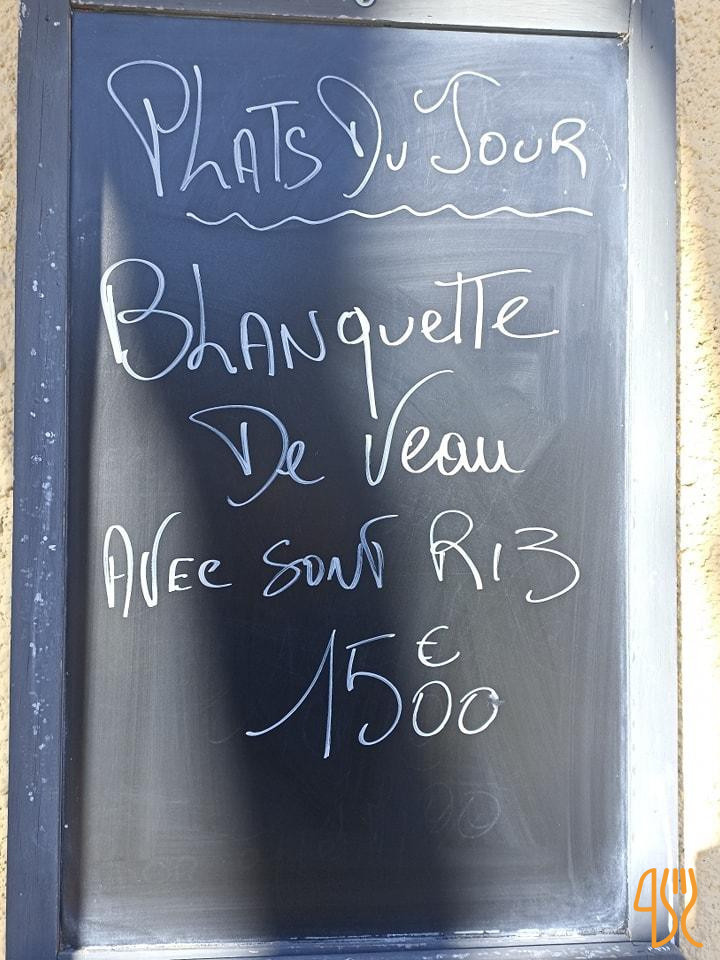 PLATS DU JOUR
BLANquette
De Veau
AVEC SONT RIZ
15€00